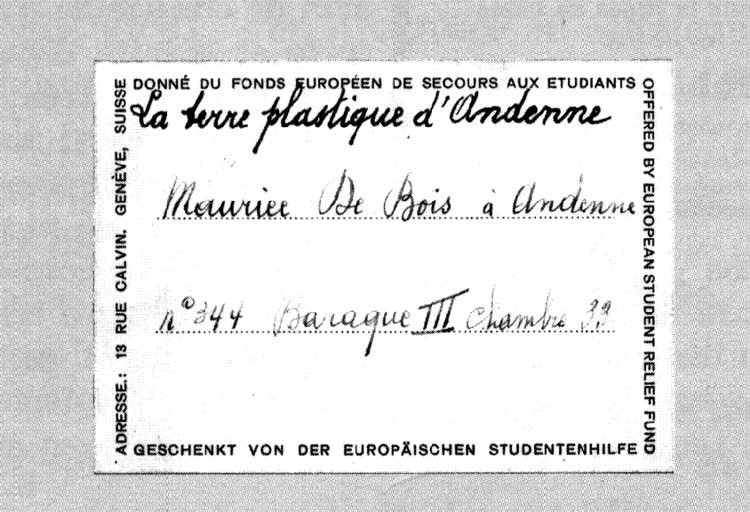 DONNÉ DU FONDS EUROPÉEN DE SECOURS AUX ETUDIANTS
La terre plastique d'Andenne
Maurice De Bois à Andenne
n° 344 Baraque III Chambre 33
GESCHENKT VON DER EUROPÄISCHEN STUDENTENHILFE
ADRESSE.: 13 RUE CALVIN. GENÈVE, SUISSE
OFFERED BY EUROPEAN STUDENT RELIEF FUND